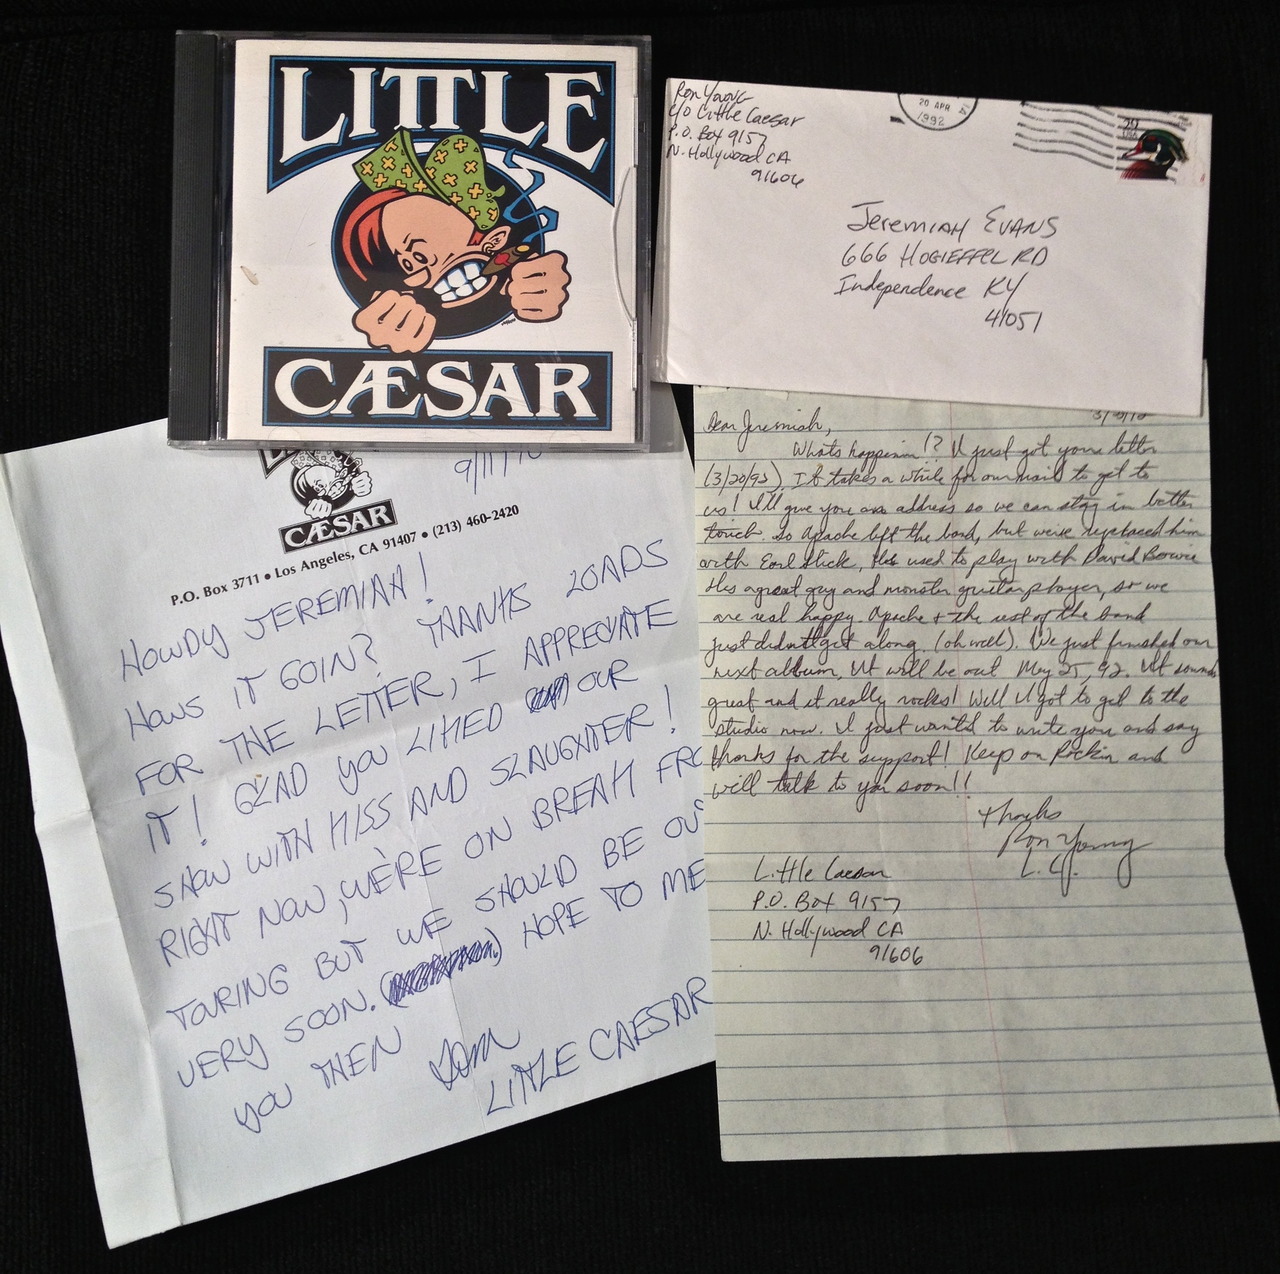 LITTLE
CÆSAR
Ron Young
c/o Little Caesar
P.O. Box 9157
N. Hollywood CA
91606
20 APR
1992
29
USA
Jeremiah Evans
666 Hogieffel RD
Independence KY
41051
CÆSAR
P.O. Box 3711 • Los Angeles, CA 91407 • (213) 460-2420
HOWDY JEREMIAH!
HOWS IT GOIN? THANKS LOADS
FOR THE LETTER, I APPRECIATE
IT! GLAD YOU LIKED OUR
SHOW WITH KISS AND SLAUGHTER!
RIGHT NOW, WE'RE ON BREAK FRO
TOURING BUT WE SHOULD BE OU
VERY SOON. HOPE TO ME
YOU THEN
Tom
LITTLE CAESAR
Dear Jeremiah,
Whats happenin!? I just got your letter
(3/20/92), It takes a while for our mail to get to
us! I'll give you our address so we can stay in better
touch. So Apache left the band, but we've replaced him
with Earl Slick, He's used to play with David Bowie
He's a great guy and monster guitar player, so we
are real happy. Apache + the rest of the band
just didn't get along. (oh well). We just finished our
next album, It will be out May 25, 92. It sounds
great and it really rocks! Well I got to get to the
studio now. I just wanted to write you and say
thanks for the support! Keep on Rockin and
will talk to you soon!!
Thanks
Ron Young
L.C.
Little Caesar
P.O. Box 9157
N. Hollywood CA
91606